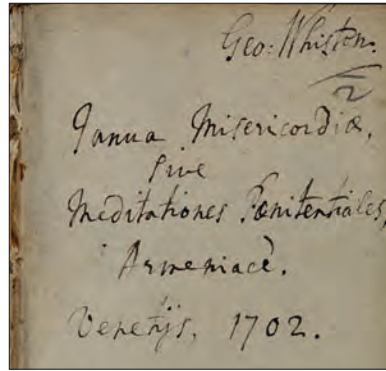 Geo: Whiston.
2
Janua Misericordiæ,
sive
Meditationes Pœnitentiales,
Armeniacè.
Venetijs, 1702.